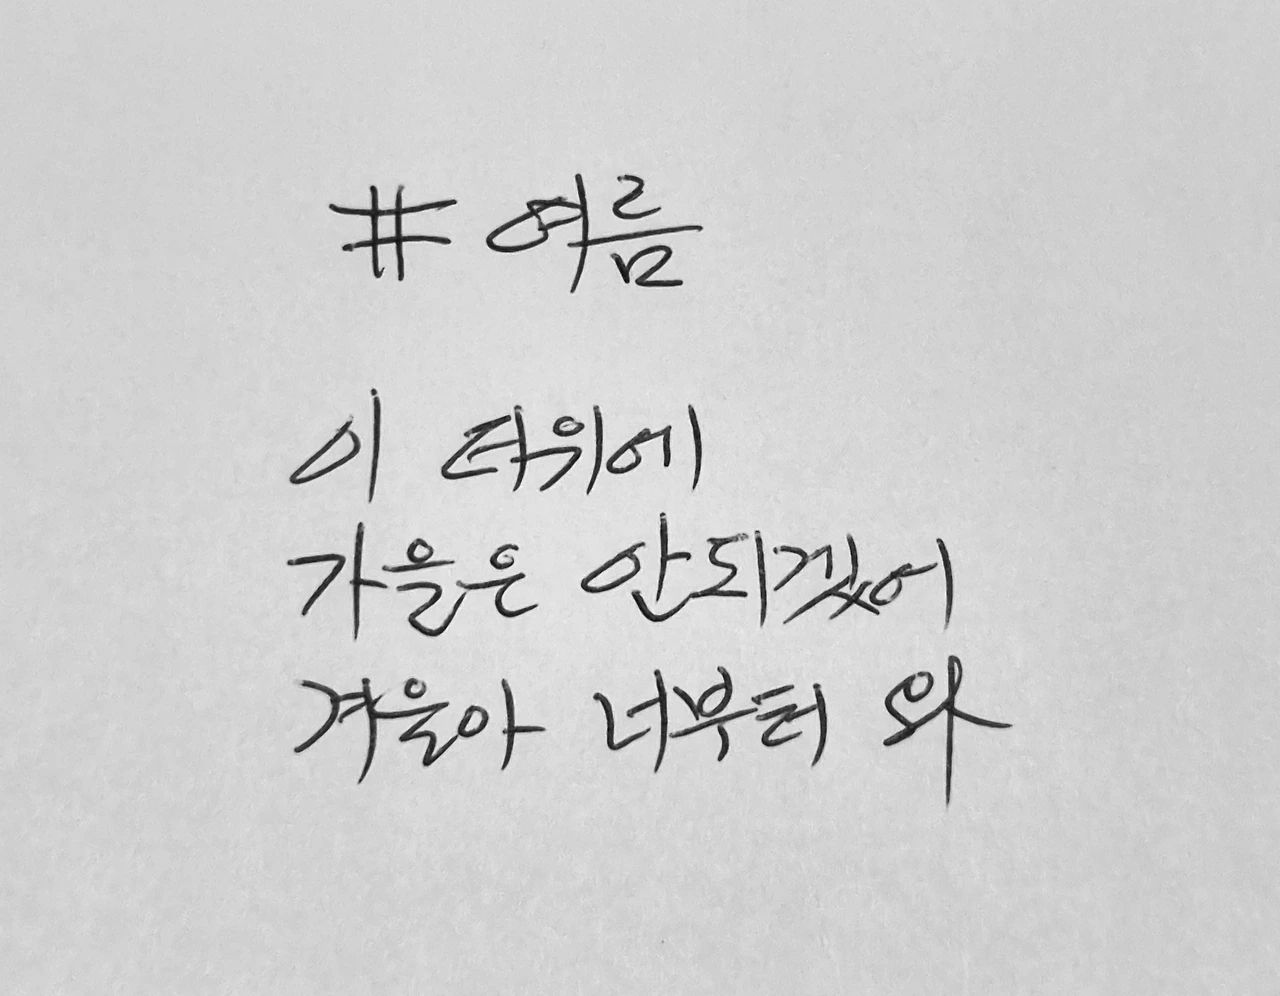 # 여름
이 더위에
가을은 안되겠어
겨울아 너부터 와